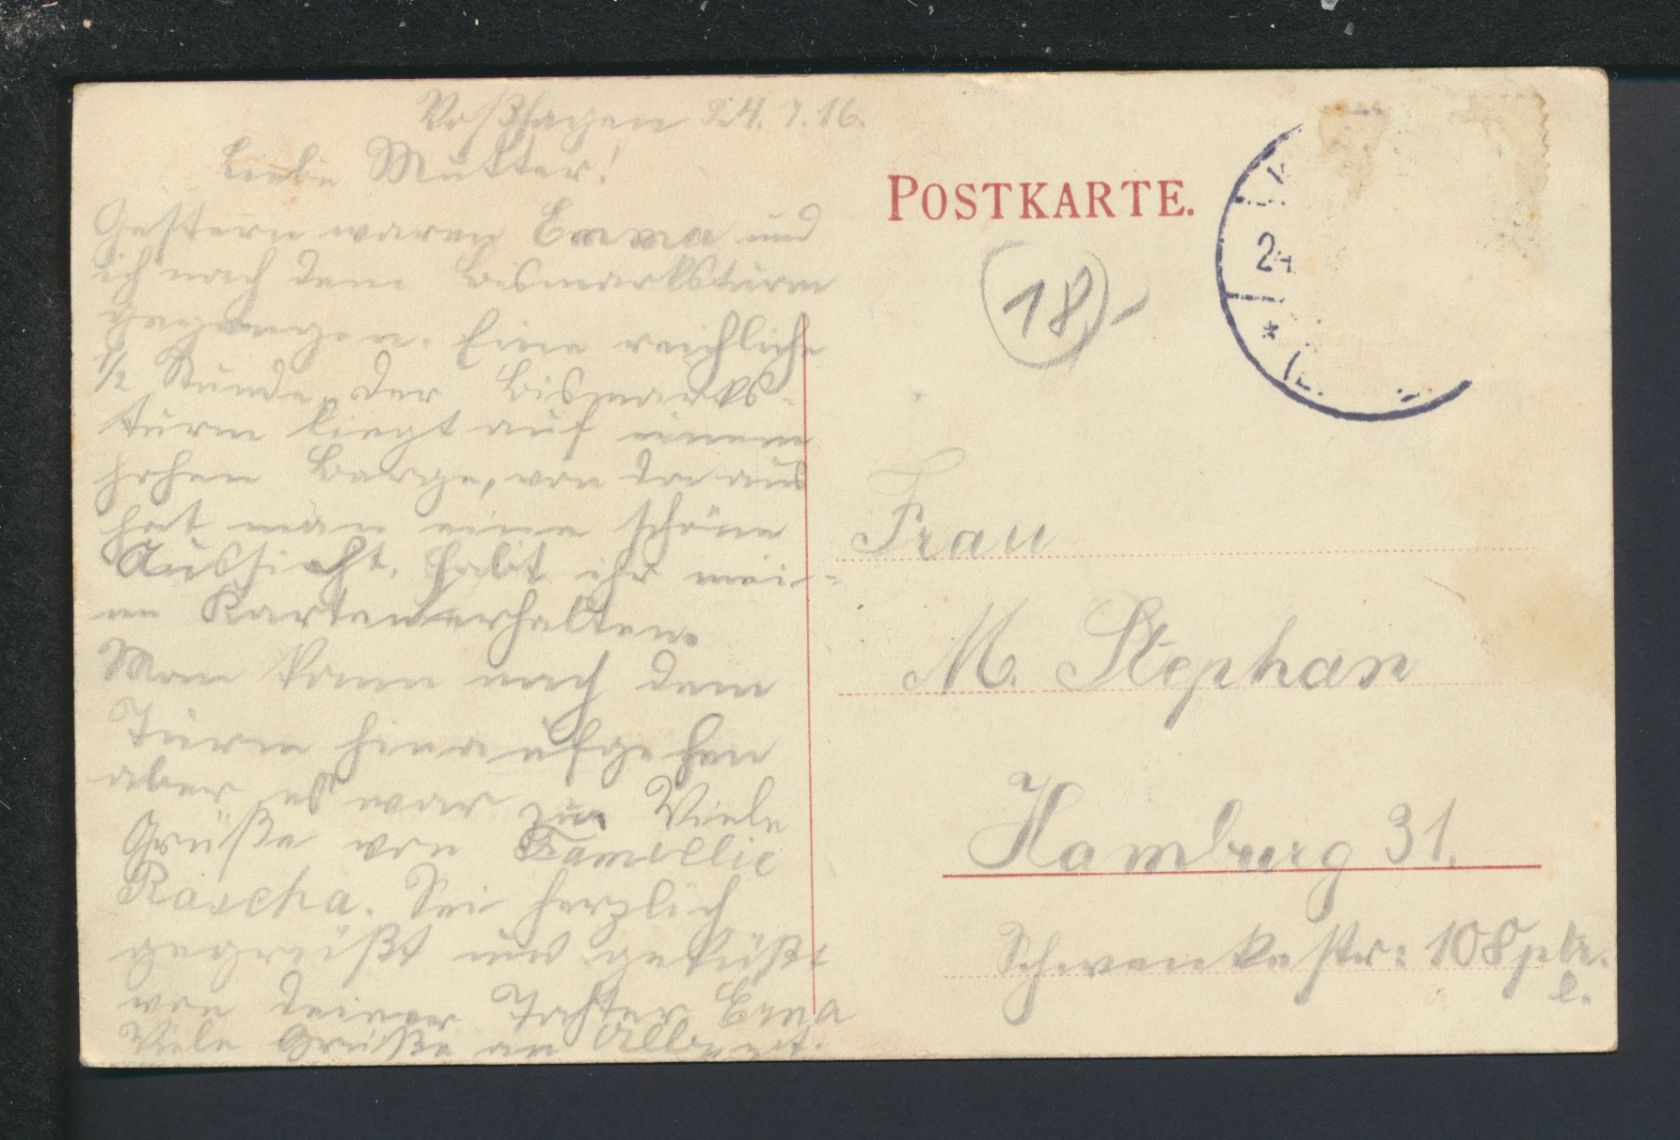 Voßhagen 24. 7. 16.
Liebe Mutter!
Gestern waren Emma und
ich nach dem Bismarksturm
gegangen. Eine reichliche
1/2 Stunde, der Bismarks-
turm liegt auf einem
hohen Berge, von da aus
hat man eine schöne
Aussicht. Habt ihr mei-
ne Karten erhalten.
Man kann nach dem
Turm hinaufgehen
aber es war zu. Viele
Grüße von Famillie
Rascha. Sei herzlich
gegrüßt und geküßt
von deiner Tochter Erna
Viele Grüße an Albert.
POSTKARTE.
18
24.
Frau
M. Stephan
Hamburg 31.
Schwenkestr: 108 ptr.
l.